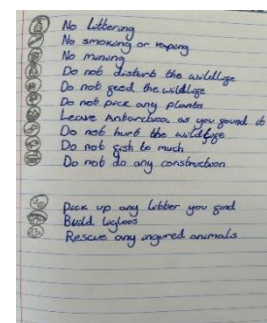 No littering
No smoking or vaping
No mining
Do not disturb the wildlife
Do not feed the wildlife
Do not pick any plants
Leave Antarctica as you found it
Do not hurt the wildlife
Do not fish to much
Do not do any construction
Pick up any litter you find
Build igloos
Rescue any ingured animals